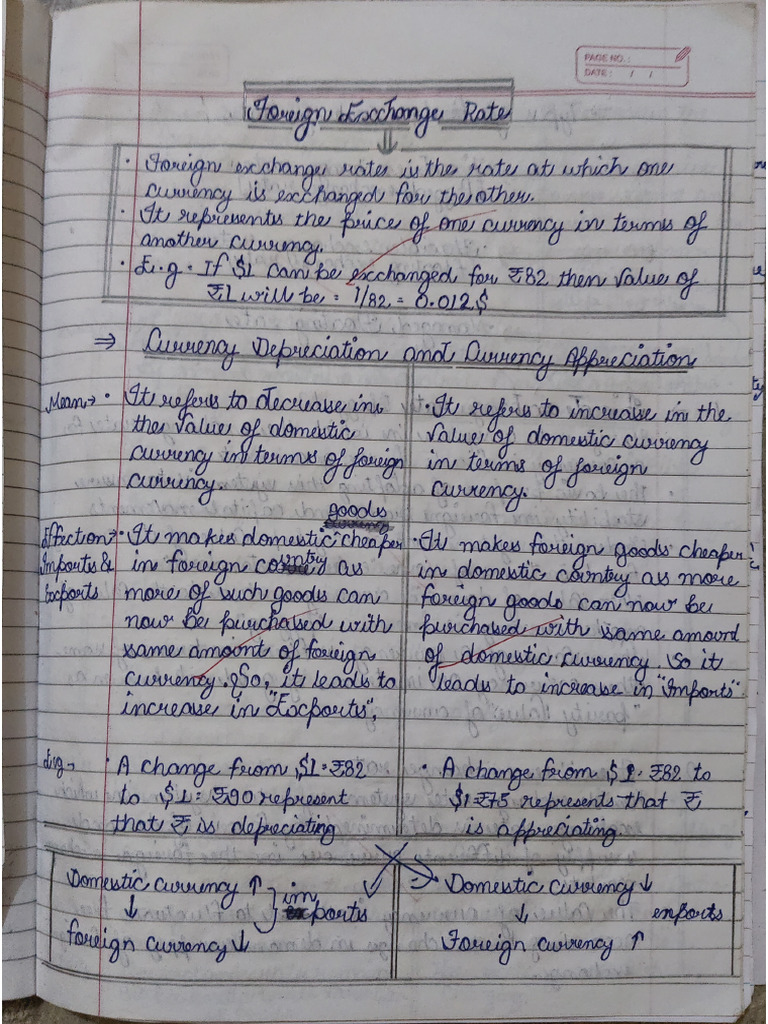 PAGE NO.:
DATE: / /
Foreign Exchange Rate
• Foreign exchange rates is the rate at which one
currency is exchanged for the other.
• It represents the price of one currency in terms of
another currency.
• E.g. If $1 can be exchanged for ₹82 then value of
₹1 will be = 1/82 = 0.012$
⇒ Currency Depreciation and Currency Appreciation
Mean → • It refers to decrease in
the value of domestic
currency in terms of foreign
currency.
goods
Effection → • It makes domestic cheaper
imports & in foreign country as
Exports more of such goods can
now be purchased with
same amount of foreign
currency. So, it leads to
increase in "Exports".
• It refers to increase in the
value of domestic currency
in terms of foreign
currency.
• It makes foreign goods cheaper
in domestic country as more
foreign goods can now be
purchased with same amount
of domestic currency. So it
leads to increase in "Imports".
E.g → • A change from $1 = ₹82
to $1 = ₹90 represent
that ₹ is depreciating
• A change from $1 = ₹82 to
$1 = ₹75 represents that ₹
is appreciating.
Domestic currency ↑
↓
foreign currency ↓
} im
ports
Domestic currency ↓
↓ exports
Foreign currency ↑